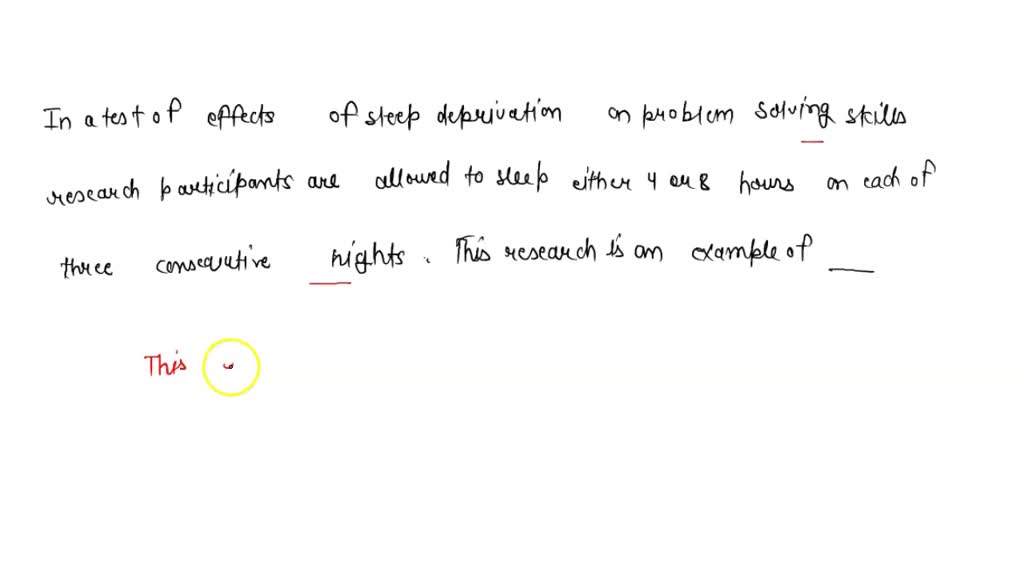 In a test of effects of steep deprivation on problem solving skills
research participants are allowed to sleep either 4 or 8 hours on each of
three consecutive nights. This research is an example of ___
This